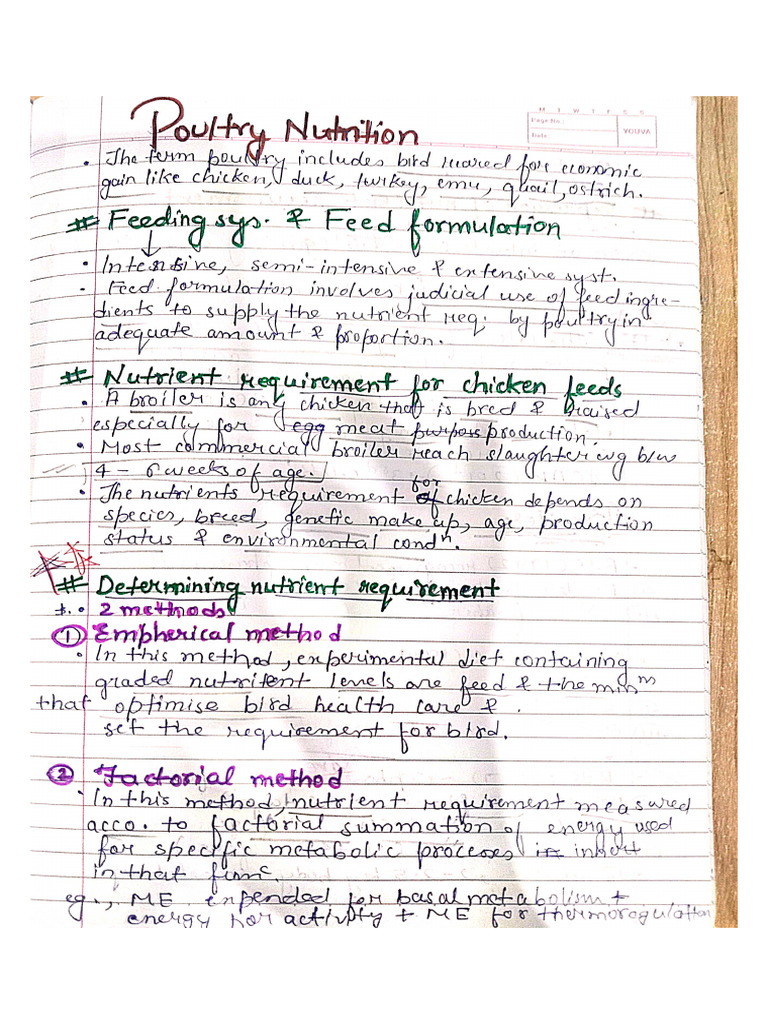 Poultry Nutrition
M T W T F S S
Page No.:
Date:
YOUVA
• The term poultry includes bird reared for economic
gain like chicken, duck, turkey, emu, quail, ostrich.
# Feeding sys. & Feed formulation
↓
• Intensive, semi-intensive & extensive syst.
- Feed formulation involves judicial use of feed ingre-
dients to supply the nutrient req. by poultry in
adequate amount & proportion.
# Nutrient requirement for chicken feeds
• A broiler is any chicken that is bred & raised
especially for egg meat purpos production.
• Most commercial broiler reach slaughter wg b/w
4 - 6 weeks of age.
• The nutrients requirement of for chicken depends on
species, breed, genetic make up, age, production
status & environmental condⁿ.
# Determining nutrient requirement
*. • 2 methods
① Empherical method
• In this method, experimental diet containing
graded nutritent levels are feed & the minᵐ
that optimise bird health care & .
set the requirement for bird.
② Factorial method
• In this method, nutrient requirement measured
acco. to factorial summation of energy used
for specific metabolic process in
in that funᶜ.
eg., ME expended for basal metabolism +
energy for activity + ME for thermoregulation